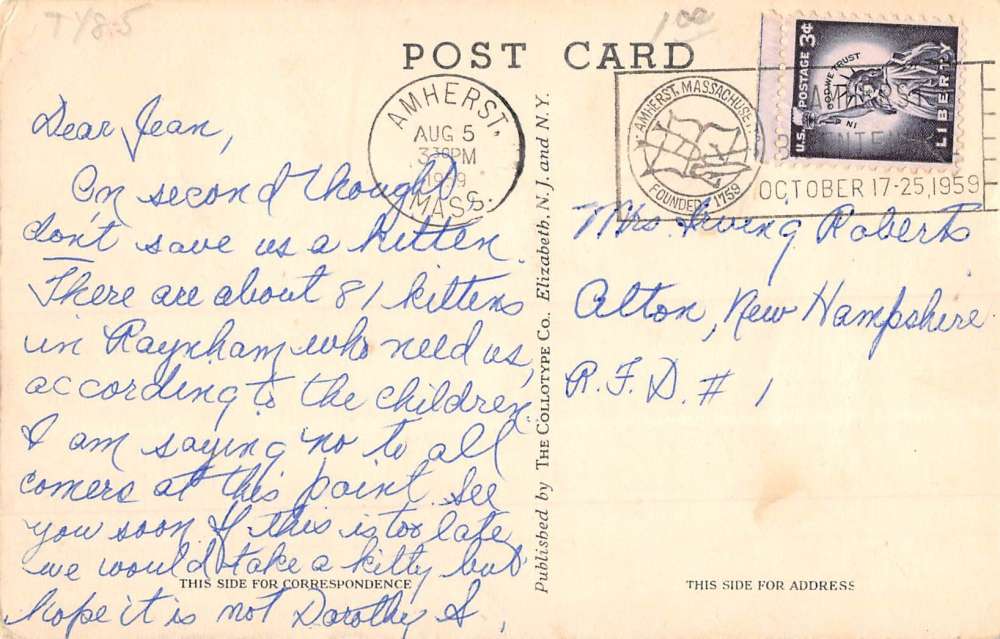 T48-5
1.00
POST CARD
AMHERST,
AUG 5
3 30 PM
1959
MASS.
AMHERST, MASSACHUSETTS
FOUNDED 1759
OCTOBER 17-25, 1959
U.S. POSTAGE 3¢
IN GOD WE TRUST
LIBERTY
Dear Jean,
On second thought
don't save us a kitten.
There are about 81 kittens
in Raynham who need us,
according to the children.
I am saying no to all
comers at this point. See
you soon. If this is too late,
we would take a kitty but
hope it is not Dorothy S.
THIS SIDE FOR CORRESPONDENCE
Published by THE COLLOTYPE CO. Elizabeth, N. J. and N. Y.
Mrs. Irving Roberts
Alton, New Hampshire
R. F. D. # 1
THIS SIDE FOR ADDRESS